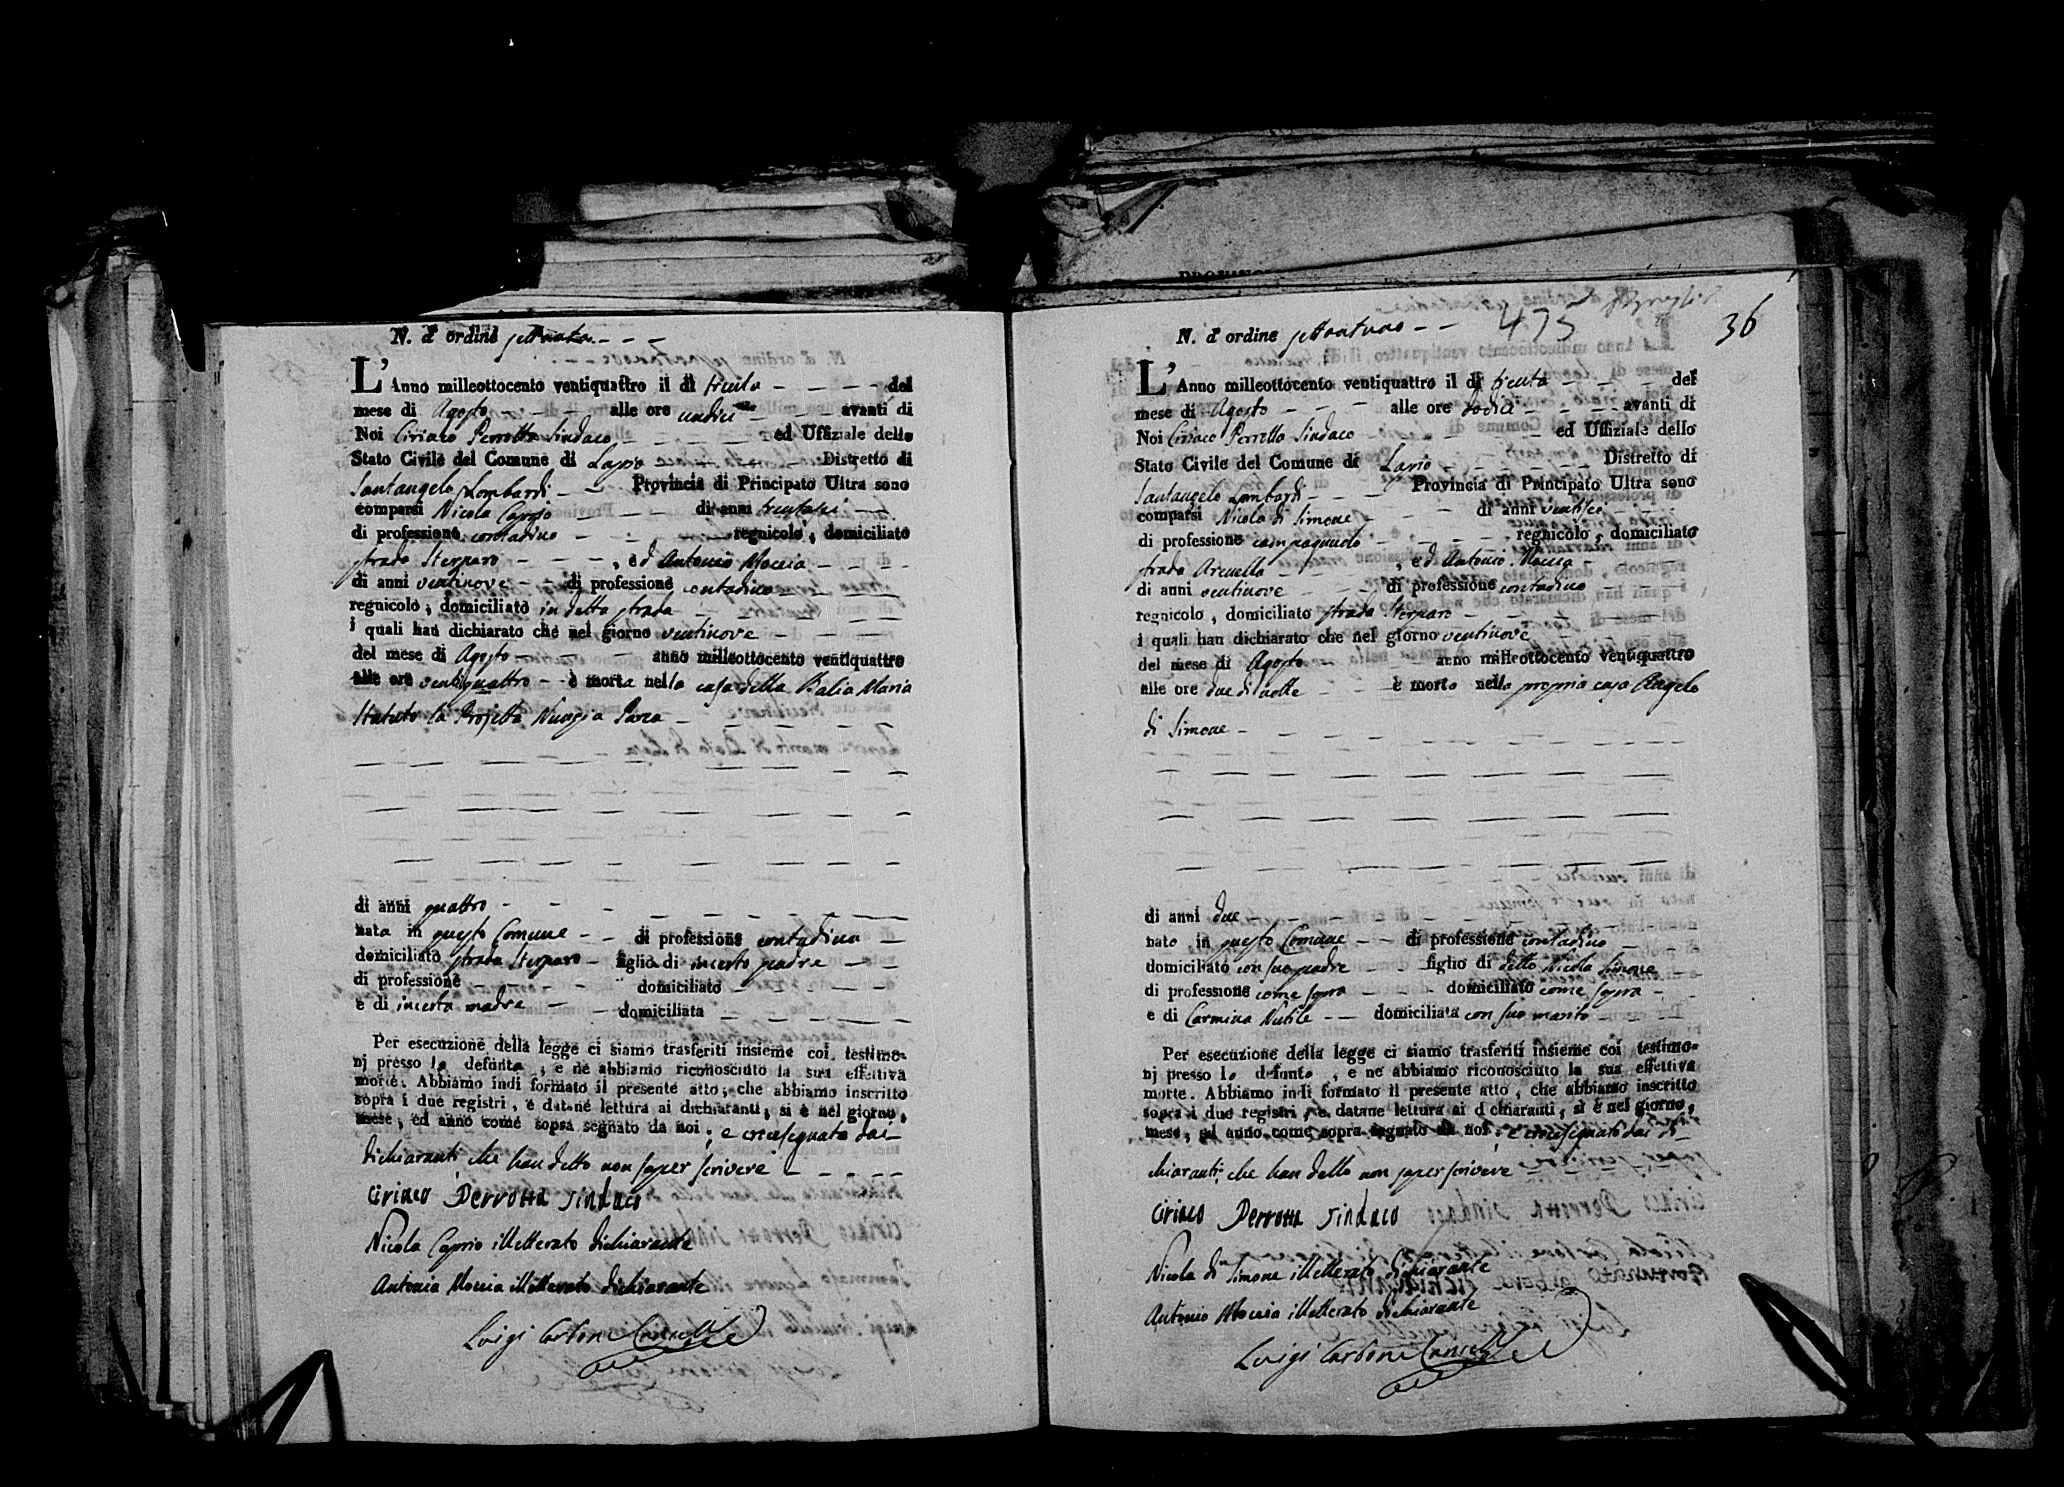 N. d'ordine settanta
L'Anno milleottocento ventiquattro il di trenta del
mese di Agosto alle ore undici avanti di
Noi Ciriaco Perrotta Sindaco ed Uffiziale dello
Stato Civile del Comune di Lapio Distretto di
Santangelo Lombardi Provincia di Principato Ultra sono
comparsi Nicola Caprio di anni trentasei
di professione contadino regnicolo, domiciliato
strada Sterparo, ed Antonio Moccia
di anni ventinove di professione contadino
regnicolo, domiciliato in detta strada
i quali han dichiarato che nel giorno ventinove
del mese di Agosto anno milleottocento ventiquattro
alle ore ventiquattro è morta nella casa della Balia Maria
Statuto la Projetta Nunzia
di anni quattro
nata in questo Comune di professione contadina
domiciliato strada Sterparo figlia di incerto padre
di professione domiciliato
e di incerta madre domiciliata
Per esecuzione della legge ci siamo trasferiti insieme coi testimo-
nj presso la defunta, e ne abbiamo riconosciuto la sua effettiva
morte. Abbiamo indi formato il presente atto, che abbiamo inscritto
sopra i due registri, e datane lettura ai dichiaranti, si è nel giorno,
mese, ed anno come sopra segnato da noi, e crocesegnato dai
dichiaranti che han detto non saper scrivere
Ciriaco Perrotta Sindaco
Nicola Caprio illetterato dichiarante
Antonio Moccia illetterato dichiarante
Luigi Carbone Cancell
36
475
N. d'ordine settantuno
L'Anno milleottocento ventiquattro il di trenta del
mese di Agosto alle ore dodici avanti di
Noi Ciriaco Perrotta Sindaco ed Uffiziale dello
Stato Civile del Comune di Lapio Distretto di
Santangelo Lombardi Provincia di Principato Ultra sono
comparsi Nicola di Simone di anni ventisei
di professione campagnuolo regnicolo, domiciliato
strada Arcuello, ed Antonio Moccia
di anni ventinove di professione contadino
regnicolo, domiciliato strada Sterparo
i quali han dichiarato che nel giorno ventinove
del mese di Agosto anno milleottocento ventiquattro
alle ore due di notte è morto nella propria casa Angelo
di Simone
di anni due
nato in questo Comune di professione contadino
domiciliato con suo padre figlio di detto Nicola Simone
di professione come sopra domiciliato come sopra
e di Carmina Nutile domiciliata con suo marito
Per esecuzione della legge ci siamo trasferiti insieme coi testimo-
nj presso lo defunto, e ne abbiamo riconosciuto la sua effettiva
morte. Abbiamo indi formato il presente atto, che abbiamo inscritto
sopra i due registri, e datane lettura ai dichiaranti, si è nel giorno,
mese, ed anno come sopra segnato da noi, e crocesegnato dai di-
chiaranti che han detto non saper scrivere
Ciriaco Perrotta Sindaco
Nicola di Simone illetterato dichiarante
Antonio Moccia illetterato dichiarante
Luigi Carbone Cancell